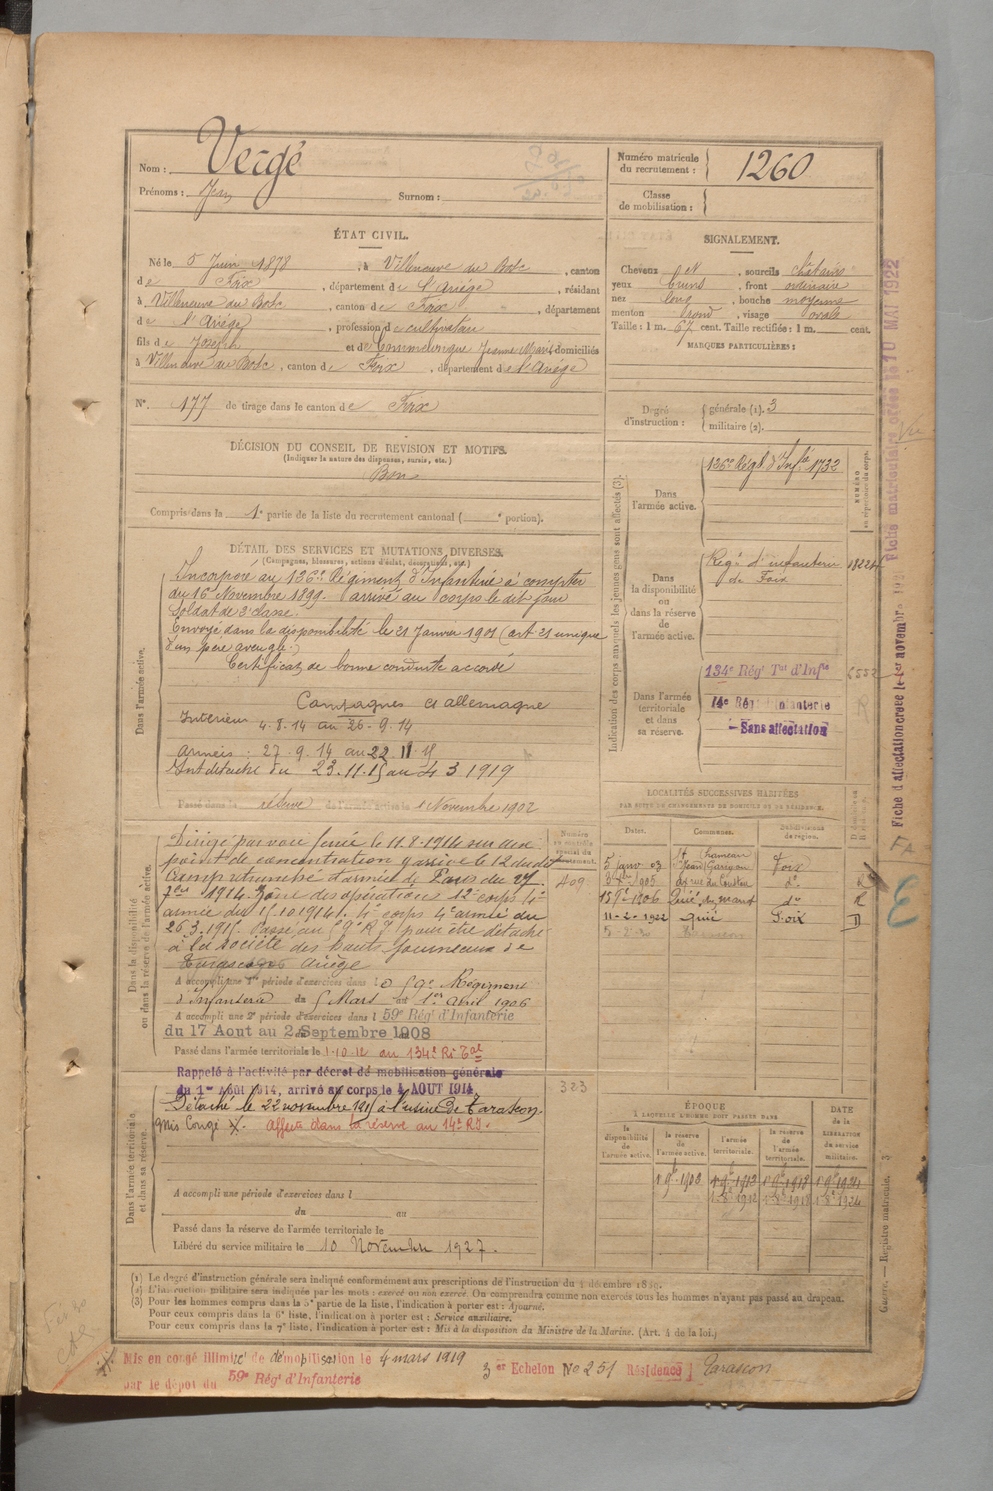 Nom : Vergé
Prénoms : Jean Surnom :
Numéro matricule du recrutement : 1260
Classe de mobilisation :
ÉTAT CIVIL.
Né le 5 Juin 1878, à Villeneuve du Bosc, canton
de Foix, département de l'Ariège, résidant
à Villeneuve du Bosc, canton de Foix, département
de l'Ariège, profession de cultivateur
fils de Joseph et de Commenengue Jeanne Marie domiciliés
à Villeneuve du Bosc, canton de Foix, département de l'Ariège
N°. 177 de tirage dans le canton de Foix
SIGNALEMENT.
Cheveux et, sourcils châtains
yeux bruns, front ordinaire
nez long, bouche moyenne
menton rond, visage ovale
Taille : 1 m. 67 cent. Taille rectifiée : 1 m. cent.
MARQUES PARTICULIÈRES :
Degré d'instruction : générale (1). 3
militaire (2).
DÉCISION DU CONSEIL DE RÉVISION ET MOTIFS.
(Indiquer la nature des dispenses, sursis, etc.)
Bon
Compris dans la 1e partie de la liste du recrutement cantonal ( e portion).
DÉTAIL DES SERVICES ET MUTATIONS DIVERSES.
(Campagnes, blessures, actions d'éclat, décorations, etc.)
Dans l'armée active.
Incorporé au 136e Régiment d'Infanterie à compter
du 16 Novembre 1899. Arrivé au corps le dit jour
Soldat de 2e classe.
Envoyé dans la disponibilité le 21 Janvier 1901 (art. 21 unique
d'un père aveugle.)
Certificat de bonne conduite accordé
Campagnes Ct allemagne
Intérieur 4.8.14 au 26.9.14
armées : 27.9.14 au 22.11.15
Int détaché du 23.11.15 au 4 3 1919
Passé dans la réserve de l'armée active le 1 Novembre 1902
Dans la disponibilité ou dans la réserve de l'armée active.
Dirigé par voie ferrée le 11.8.1914 sur un
point de concentration y arrive le 12 du dit
Camp retranché d'armée de Paris du 27
7bre 1914. Zone des opérations 12e corps 4e
armée du 15.10.1914. 4e corps 4e armée du
26.3.1915. Passé au 59e RI pour être détaché
à la société des hauts fourneaux de
Tarascon Ariège
A accompli une 1re période d'exercices dans le 59e Régiment
d'Infanterie du 5 Mars au 1er Avril 1906
A accompli une 2e période d'exercices dans l 59e Régt d'Infanterie
du 17 Aout au 2 Septembre 1908
Passé dans l'armée territoriale le 1.10.12 au 134e Ri Tal
Dans l'armée territoriale et dans sa réserve.
Rappelé à l'activité par décret de mobilisation générale
du 1er Août 1914, arrivé au corps le 4 AOUT 1914
Détaché le 22 novembre 1915 à l'usine de Tarascon.
Mis Congé X. Affecté dans la réserve au 14e RI.
A accompli une période d'exercices dans l
du au
Passé dans la réserve de l'armée territoriale le
Libéré du service militaire le 10 Novembre 1927.
Numéro au contrôle spécial du recrutement.
409
323
Indication des corps auxquels les jeunes gens sont affectés (3).
Dans l'armée active. 136e Régt. d'Infie 1732
Dans la disponibilité ou dans la réserve de l'armée active. Regt d'infanterie de Foix 18224
Dans l'armée territoriale et dans sa réserve. 134e Régt Tal d'Infie
14e Régt d'Infanterie
Sans affectation
NUMÉRO au répertoire du corps.
LOCALITÉS SUCCESSIVES HABITÉES
PAR SUITE DE CHANGEMENTS DE DOMICILE OU DE RÉSIDENCE.
Dates. Communes. Subdivisions de région.
5 janv 03 Foix
1905 do
1906 Quié do R
11-2-1922 Quié Foix D
ÉPOQUE
À LAQUELLE L'HOMME DOIT PASSER DANS
la disponibilité de l'armée active.
la réserve de l'armée active.
l'armée territoriale.
la réserve de l'armée territoriale.
DATE de la LIBÉRATION DU SERVICE militaire.
(1) Le degré d'instruction générale sera indiqué conformément aux prescriptions de l'instruction du 4 décembre 1889.
(2) L'instruction militaire sera indiquée par les mots : exercé ou non exercé. On comprendra comme non exercés tous les hommes n'ayant pas passé au drapeau.
(3) Pour les hommes compris dans la 5e partie de la liste, l'indication à porter est : Ajourné.
Pour ceux compris dans la 6e liste, l'indication à porter est : Service auxiliaire.
Pour ceux compris dans la 7e liste, l'indication à porter est : Mis à la disposition du Ministre de la Marine. (Art. 4 de la loi.)
Mis en congé illimité de démobilisation le 4 mars 1919
par le dépôt du 59e Régt d'Infanterie
3 er Echelon No 251 Résidence Tarascon
Guerre. — Registre matricule. 3
Fiche matriculaire créée le 10 MAI 1922
Fiche d'affectation créée le 1er novembre
Vu
FA
E